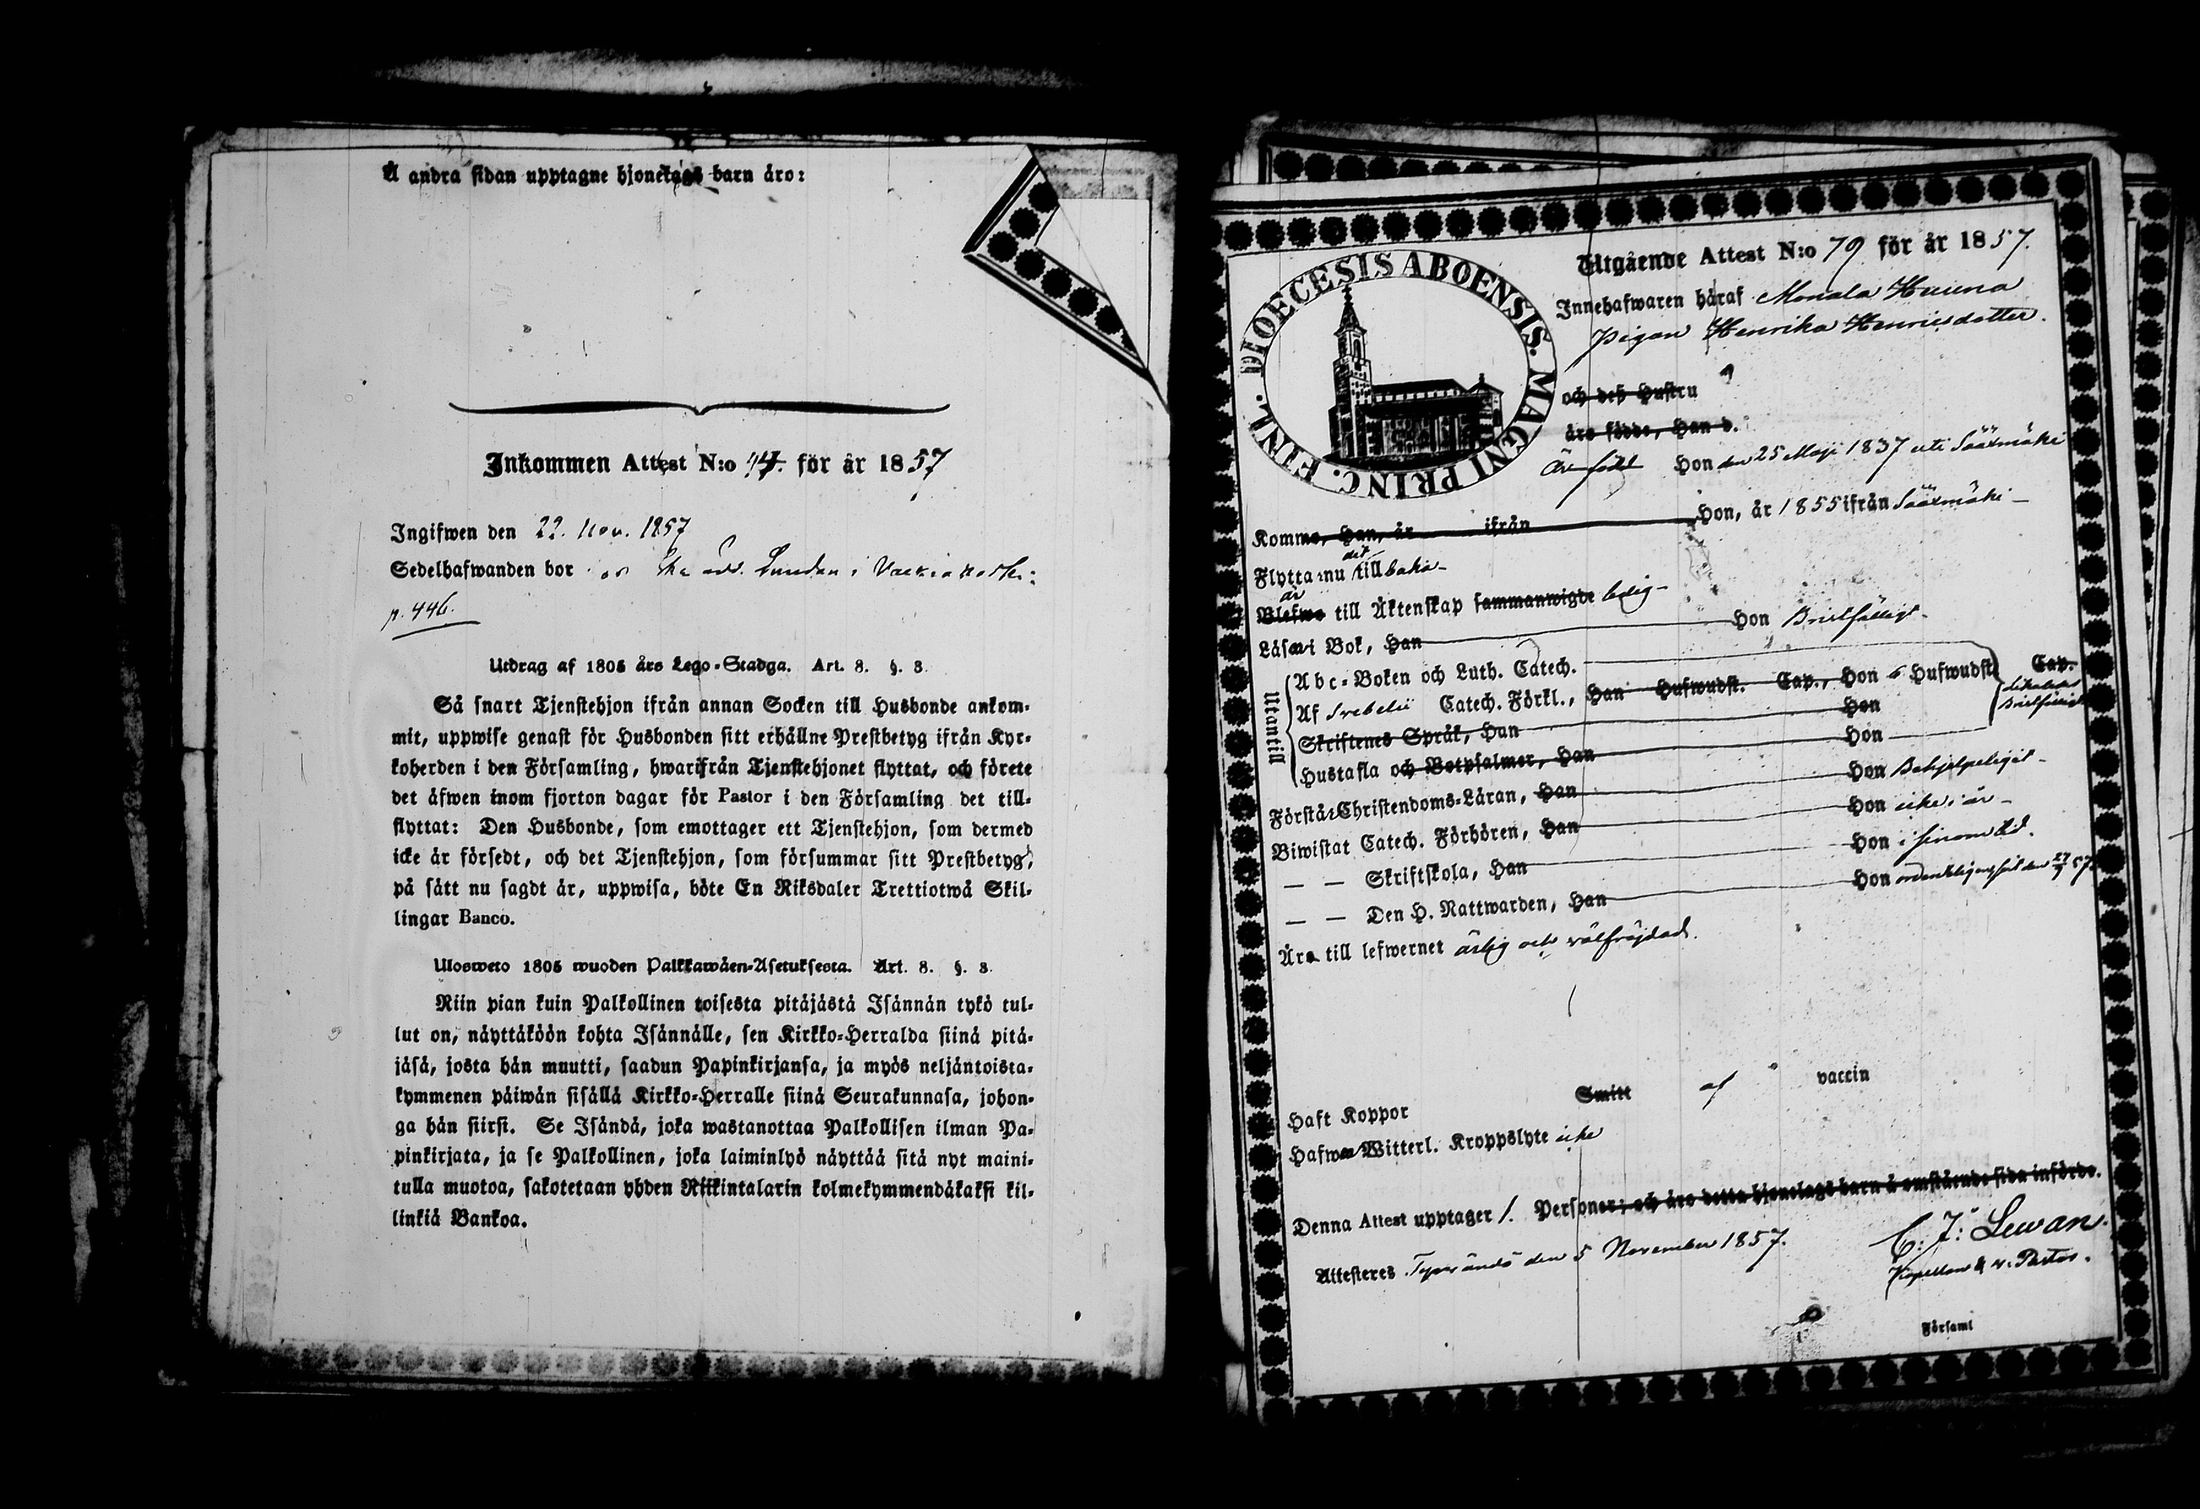 Å andra sidan upptagne hjonelags barn äro:
Inkommen Attest N:o 44. för år 1857
Ingifwen den 22. Nov. 1857
Sedelhafwanden bor i
p. 446.
Utdrag af 1805 års Lego-Stadga. Art. 8. §. 8.
Så snart Tjenstehjon ifrån annan Socken till Husbonde ankom-
mit, uppwise genast för Husbonden sitt erhållne Prestbetyg ifrån Kyr-
koherden i den Församling, hwarifrån Tjenstehjonet flyttat, och förete
det äfwen inom fjorton dagar för Pastor i den Församling det till-
flyttat: Den Husbonde, som emottager ett Tjenstehjon, som dermed
icke är försedt, och det Tjenstehjon, som försummar sitt Prestbetyg,
på sätt nu sagdt är, uppwisa, böte En Riksdaler Trettiotwå Skil-
lingar Banco.
Ulosweto 1805 wuoden Palkkawäen-Asetuksesta. Art. 8. §. 8.
Niin pian kuin Palkollinen toisesta pitäjästä Isännän tykö tul-
lut on, näyttäköön kohta Isännälle, sen Kirkko-Herralda siinä pitä-
jäsä, josta hän muutti, saadun Papinkirjansa, ja myös neljäntoista-
kymmenen päiwän sisällä Kirkko-Herralle siinä Seurakunnasa, johon-
ga hän siirsi. Se Isändä, joka wastanottaa Palkollisen ilman Pa-
pinkirjata, ja se Palkollinen, joka laiminlyö näyttää sitä nyt maini-
tulla muotoa, sakotetaan yhden Riikintalarin kolmekymmendäkaksi kil-
linkiä Bankoa.
DIOECESIS ABOENSIS. MAGNI PRINC. FINL.
Utgående Attest N:o 79 för år 1857.
Innehafwaren häraf Monala Hanna
Pigan Henrika Henricsdotter.
och deß Hustru
äro födde, Han d.
Är född Hon den 25 Maji 1837 uti Sääxmäki
Komme, Han, år ifrån Hon, år 1855 ifrån Sääxmäki
Flytta nu dit tillbaka
Blefwo är till Äktenskap sammanwigde ledig
Läsa i Bok, Han Hon Bristfälligt
Utantill
Abc-Boken och Luth. Catech.
Af Svebelii Catech. Förkl., Han Hufwudst. Cap., Hon 6 Hufwudst. Cap.
Skriftenes Språk, Han Hon
Hustafla och Botpsalmer, Han Hon
Bristfälligt
Förstår Christendoms-Läran, Han Hon Behjelpeligit
Biwistat Catech. Förhören, Han Hon icke i år
— — Skriftskola, Han Hon i sinom tid.
— — Den H. Nattwarden, Han Hon
Äro till lefwernet ärlig och välfrejdad.
Haft Koppor Smitt af vaccin
Hafwa Witterl. Kroppslyte icke
Denna Attest upptager 1. Personer; och äro detta hjonelags barn å omstående sida införde.
Attesteres Tyrvändö den 5 November 1857.
C. J. Lewan.
Kapellan & v. Pastor.
Församl